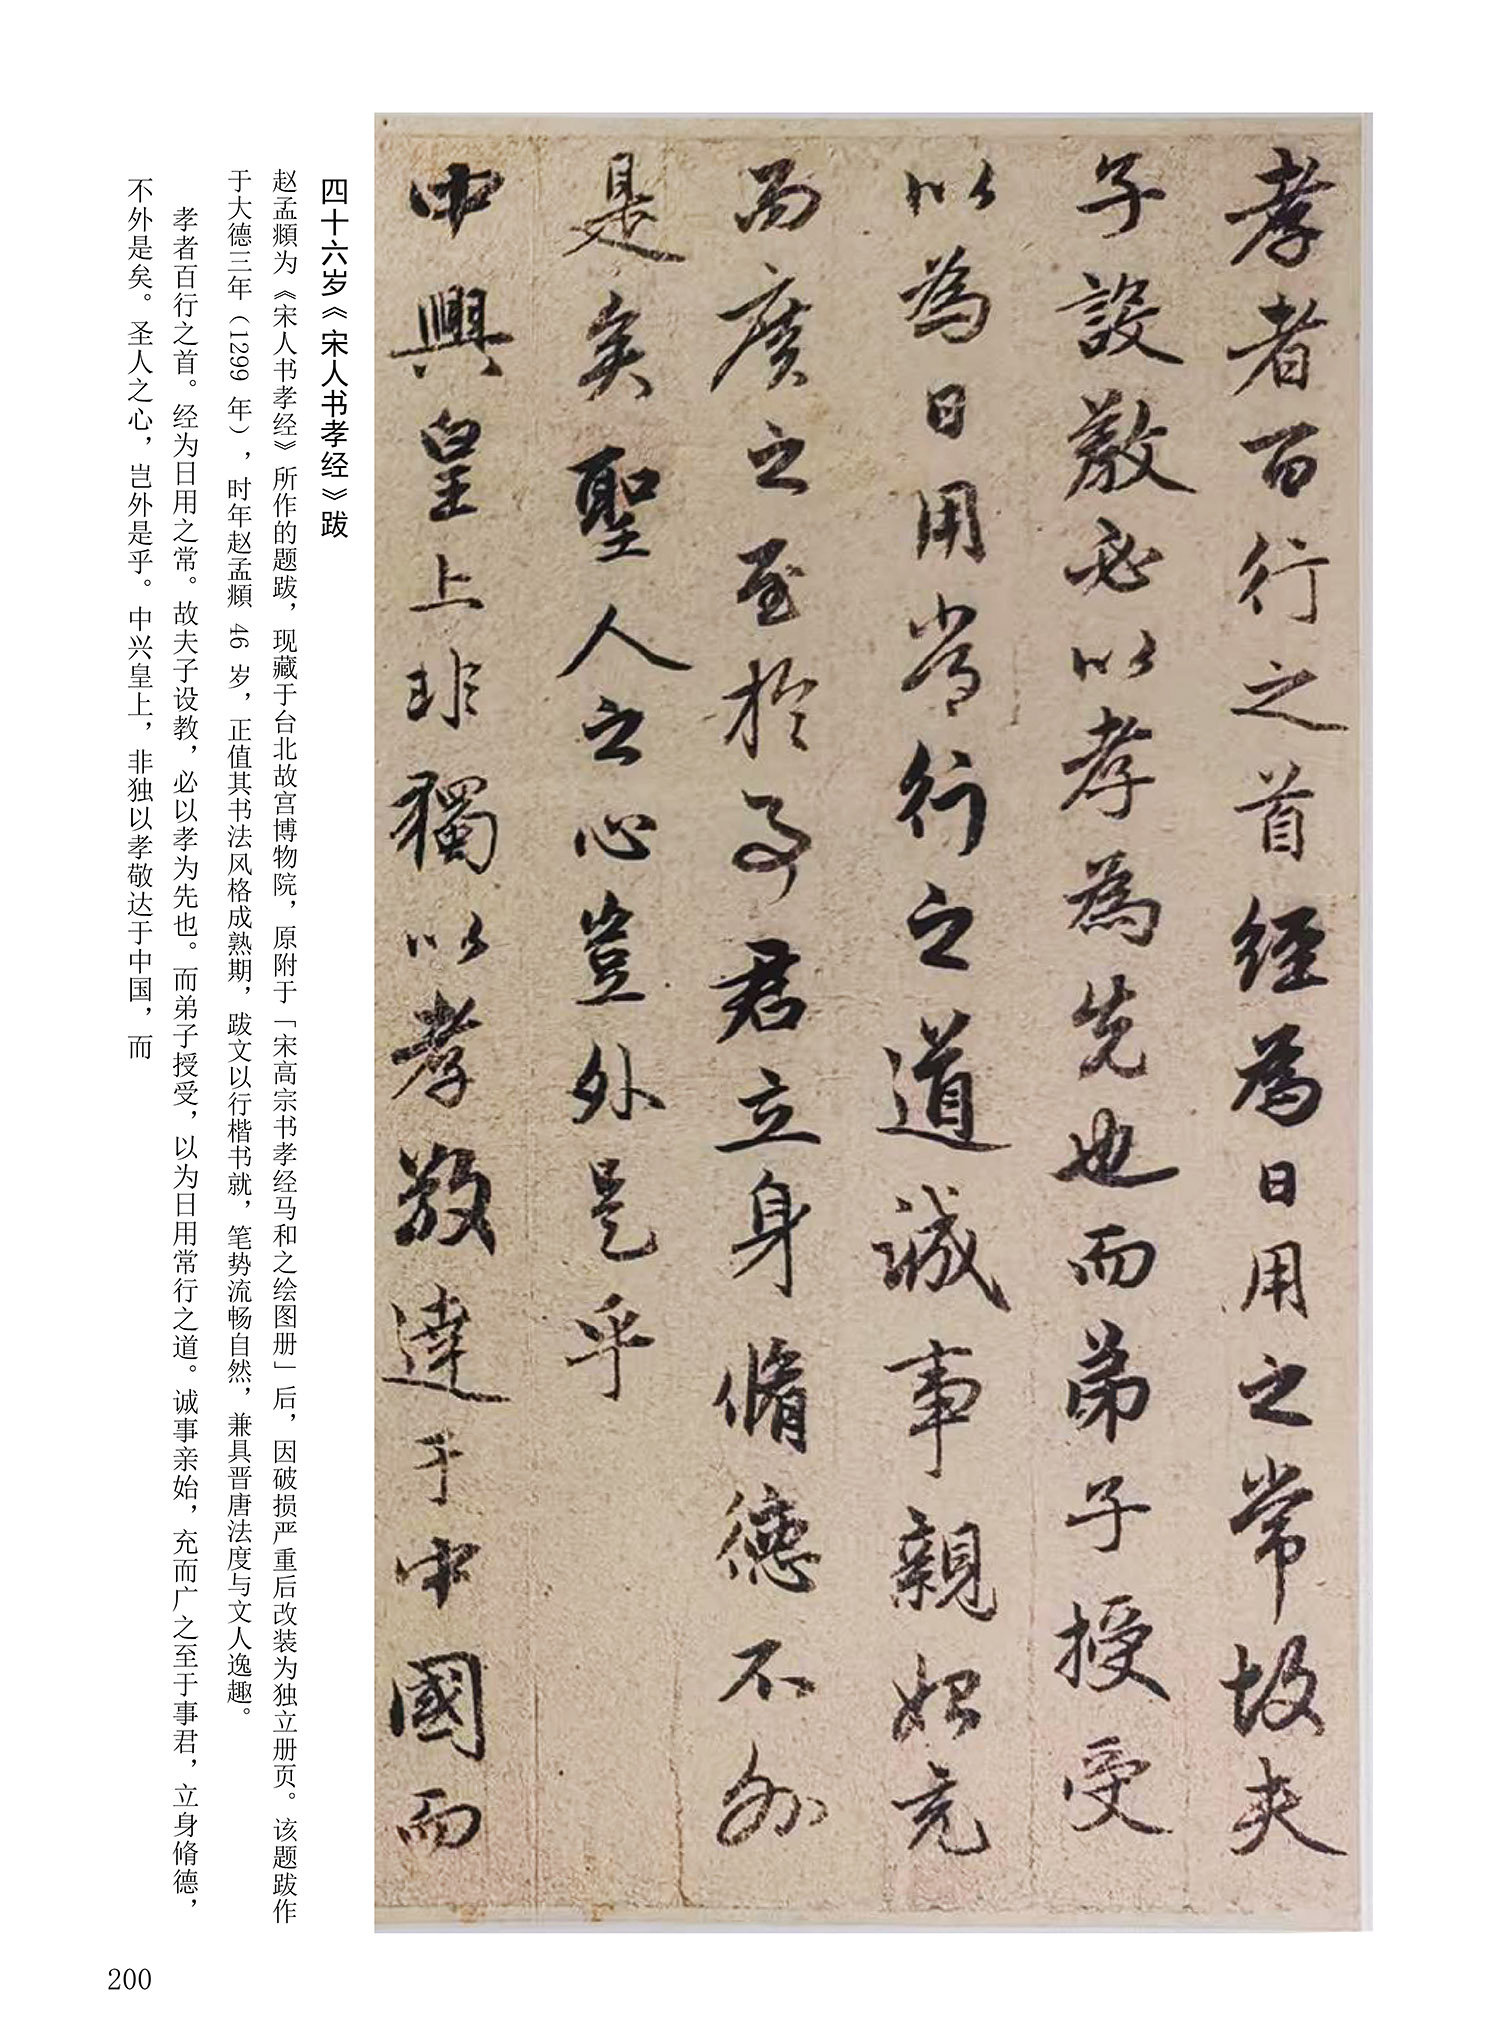 孝者百行之首經為日用之常故夫
子設教必以孝為先也而弟子授受
以為日用常行之道誠事親始充
而廣之至於事君立身脩德不外
是矣聖人之心豈外是乎
中興皇上非獨以孝敬達于中國而
四十六岁《宋人书孝经》跋
赵孟頫为《宋人书孝经》所作的题跋，现藏于台北故宫博物院，原附于「宋高宗书孝经马和之绘图册」后，因破损严重后改装为独立册页。该题跋作
于大德三年（1299 年），时年赵孟頫 46 岁，正值其书法风格成熟期，跋文以行楷书就，笔势流畅自然，兼具晋唐法度与文人逸趣。
孝者百行之首。经为日用之常。故夫子设教，必以孝为先也。而弟子授受，以为日用常行之道。诚事亲始，充而广之至于事君，立身脩德，
不外是矣。圣人之心，岂外是乎。中兴皇上，非独以孝敬达于中国，而
200